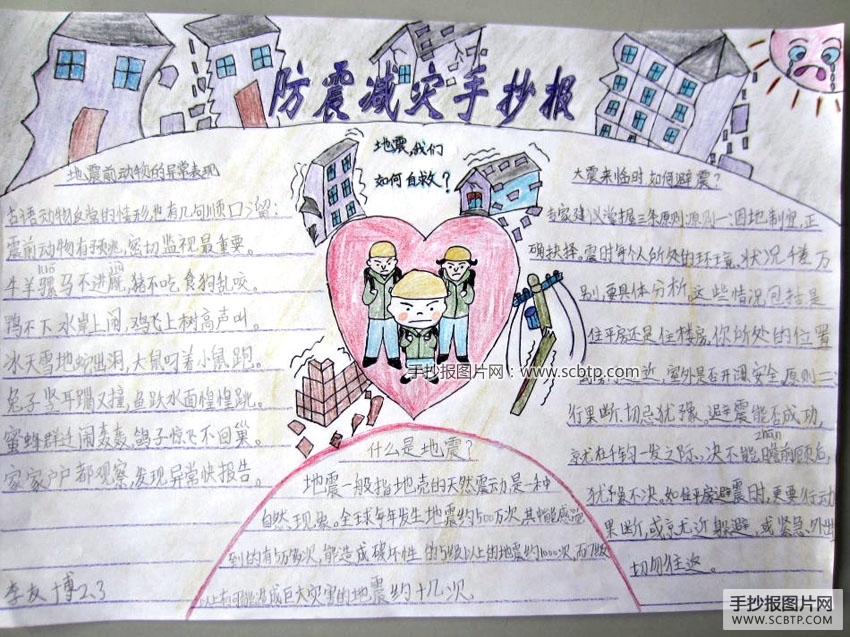 防震减灾手抄报
地震,我们
如何自救?
地震前动物的异常表现
古语动物反常的情形,也有几句顺口溜:
震前动物有预兆,密切监视最重要。
luó juàn
牛羊骡马不进圈,猪不吃食狗乱咬。
鸭不下水岸上闹,鸡飞上树高声叫。
冰天雪地蛇出洞,大鼠叼着小鼠跑。
兔子竖耳蹦又撞,鱼跃水面惶惶跳。
蜜蜂群迁闹轰轰,鸽子惊飞不回巢。
家家户户都观察,发现异常快报告。
李友博2.3
什么是地震?
地震一般指地壳的天然震动,是一种
自然现象。全球每年发生地震约500万次,其中能感觉
到的有5万多次,能造成破坏性的5级以上的地震约1000次,而7级
以上有可能造成巨大灾害的地震约十几次。
大震来临时如何避震?
专家建议掌握三条原则:原则一:因地制宜,正
确抉择。震时每个人所处的环境、状况千差万
别,要具体分析,这些情况包括是
住平房还是住楼房,你所处的位置
室外是否开阔安全,原则二:
行果断,切忌犹豫。避震能否成功,
zhān
就在千钧一发之际,决不能瞻前顾后,
犹豫不决。如住平房避震时,更要行动
果断,或就近躲避,或紧急外出
切勿往返。
手抄报图片网:www.scbtp.com
手抄报图片网
WWW.SCBTP.COM